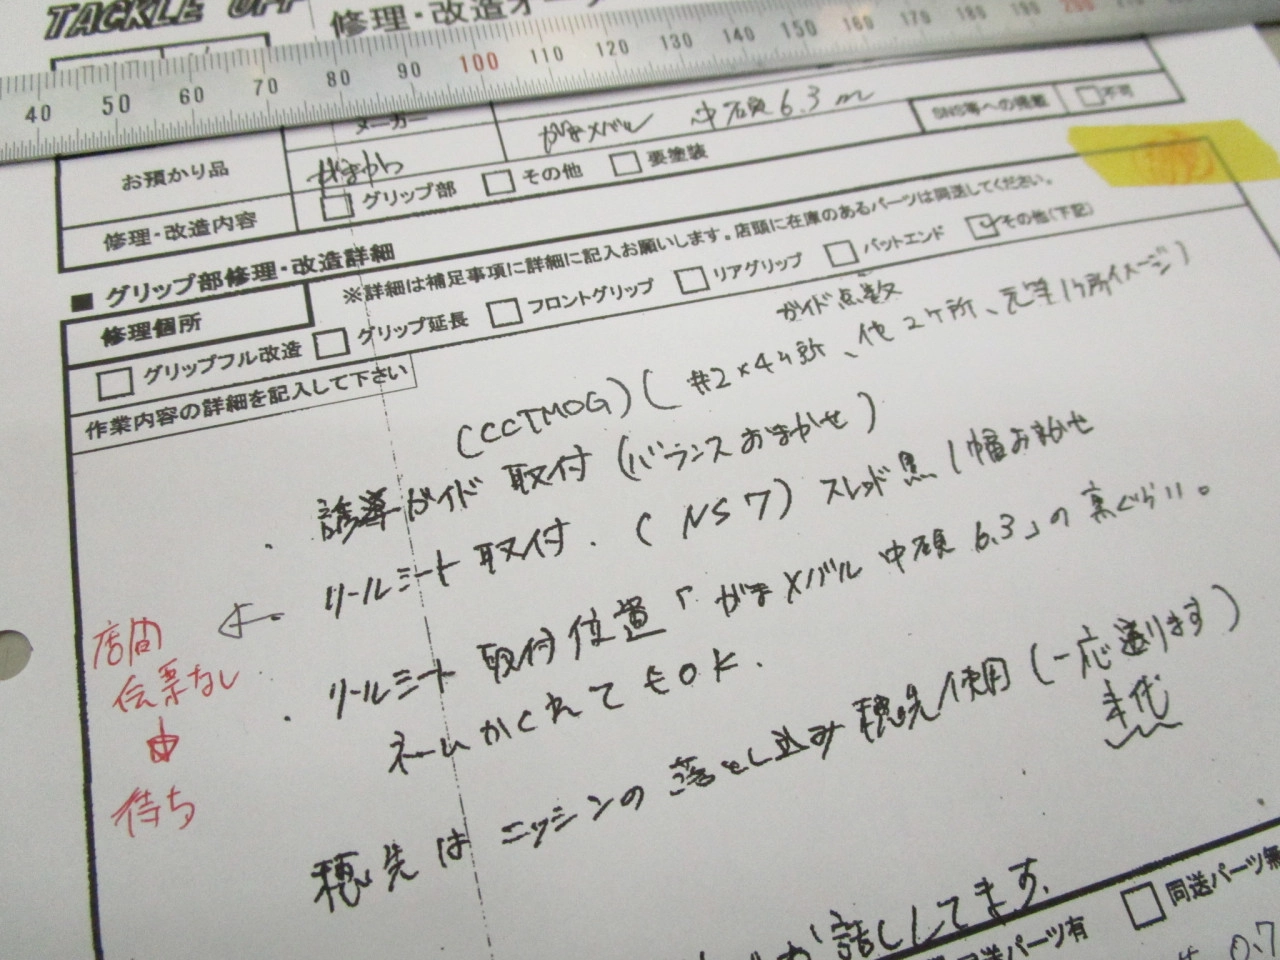 TACKLE OFF
修理・改造オー
40 50 60 70 80 90 100 110 120 130 140 150 160 170 180 190 200 210
メーカー
お預かり品
がまかつ
がまメバル 中硬6.3m
SNS等への掲載
不可
修理・改造内容
グリップ部
その他
要塗装
■ グリップ部修理・改造詳細
※詳細は補足事項に詳細に記入お願いします。店頭に在庫のあるパーツは同送してください。
修理個所
グリップフル改造
グリップ延長
フロントグリップ
リアグリップ
バットエンド
その他(下記)
作業内容の詳細を記入して下さい
ガイド点数
(CCTMOG) (#2×4ヶ所、他2ヶ所、元竿1ヶ所イメージ)
・誘導ガイド 取付 (バランスおまかせ)
リールシート取付. (NS7) スレッド黒/幅おまかせ
・リールシート 取付位置「がまメバル 中硬 6.3」の裏ぐらい。
ネームかくれてもOK.
穂先は ニッシンの 落とし込み穂先使用(一応送ります)
店間
伝票なし
待ち
話してます.
同送パーツ有
同送パーツ無
0.7